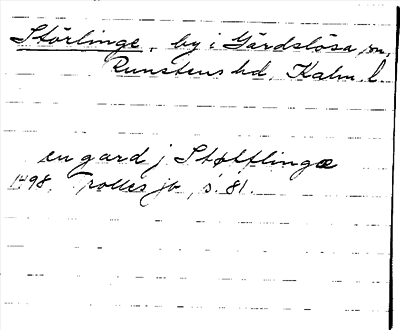 Störlinge, by i Gärdslösa sn,
Runstens hd, Kalm. l.
en gard j Støltlinge
1498, Trolles jb, s. 81.